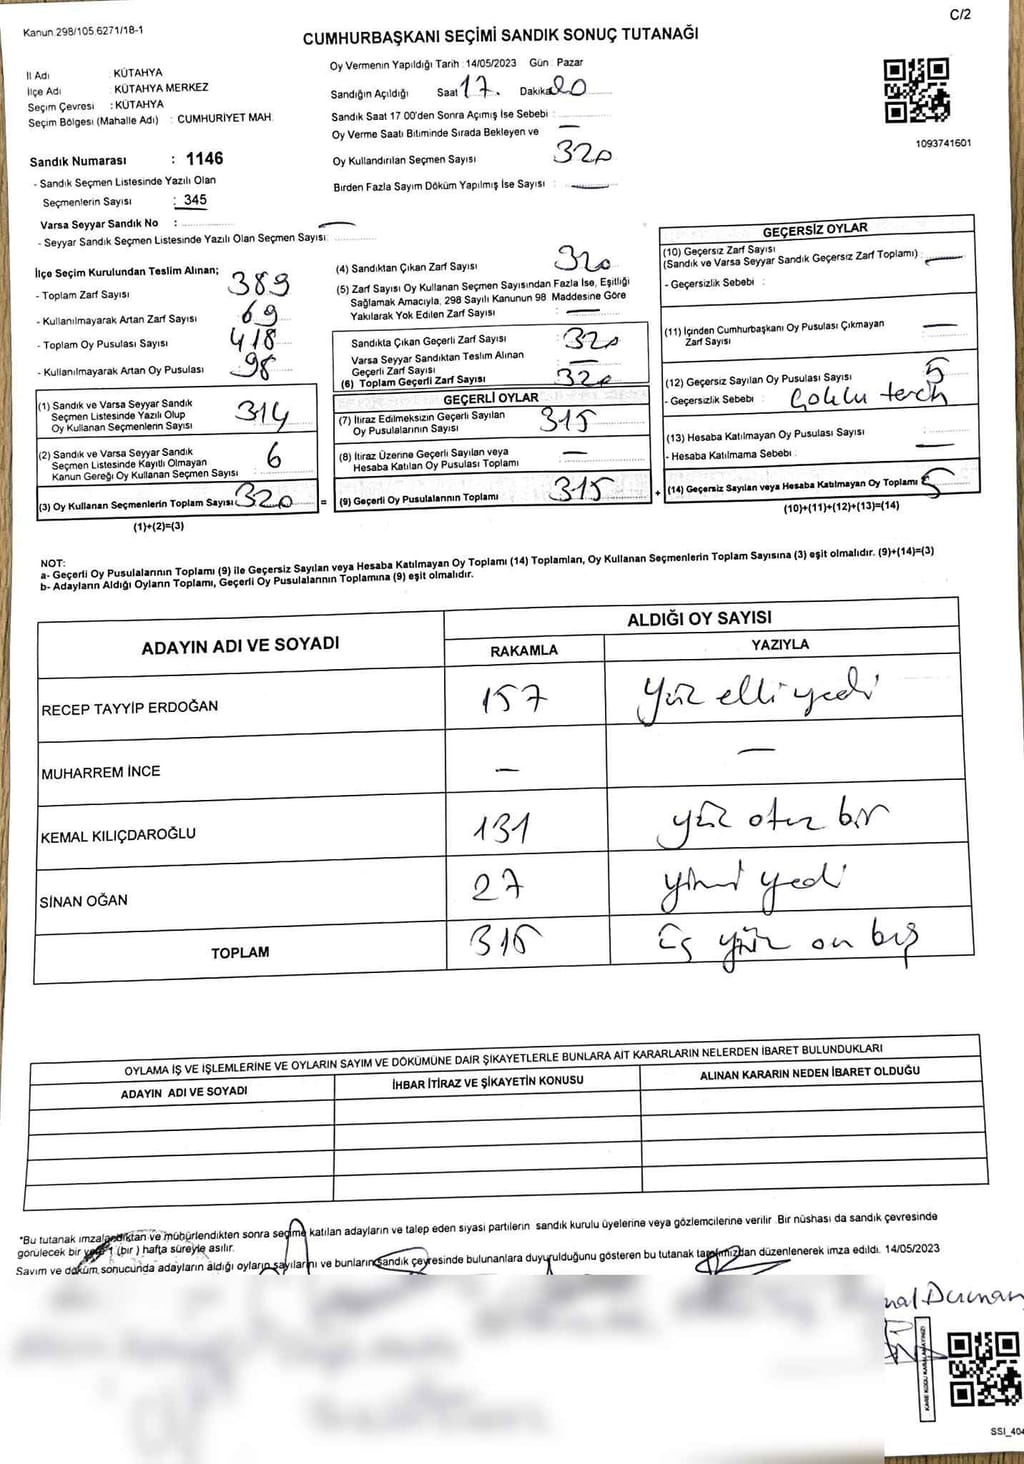 Kanun 298/105,6271/18-1
C/2
CUMHURBAŞKANI SEÇİMİ SANDIK SONUÇ TUTANAĞI
İl Adı : KÜTAHYA
İlçe Adı : KÜTAHYA MERKEZ
Seçim Çevresi : KÜTAHYA
Seçim Bölgesi (Mahalle Adı) : CUMHURİYET MAH.
Oy Vermenin Yapıldığı Tarih :14/05/2023 Gün : Pazar
Sandığın Açıldığı Saat 17. Dakika 20
Sandık Saat 17 00'den Sonra Açımış İse Sebebi :
Oy Verme Saati Bitiminde Sırada Bekleyen ve —
Oy Kullandırılan Seçmen Sayısı : 320
Birden Fazla Sayım Döküm Yapılmış İse Sayısı : —
1093741601
Sandık Numarası : 1146
- Sandık Seçmen Listesinde Yazılı Olan
Seçmenlerin Sayısı : 345
Varsa Seyyar Sandık No : —
- Seyyar Sandık Seçmen Listesinde Yazılı Olan Seçmen Sayısı:
İlçe Seçim Kurulundan Teslim Alınan;
- Toplam Zarf Sayısı 389
- Kullanılmayarak Artan Zarf Sayısı 69
- Toplam Oy Pusulası Sayısı 418
- Kullanılmayarak Artan Oy Pusulası 98
(1) Sandık ve Varsa Seyyar Sandık
Seçmen Listesinde Yazılı Olup
Oy Kullanan Seçmenlerin Sayısı 314
(2) Sandık ve Varsa Seyyar Sandık
Seçmen Listesinde Kayıtlı Olmayan
Kanun Gereği Oy Kullanan Seçmen Sayısı 6
(3) Oy Kullanan Seçmenlerin Toplam Sayısı 320 =
(1)+(2)=(3)
(4) Sandıktan Çıkan Zarf Sayısı : 320
(5) Zarf Sayısı Oy Kullanan Seçmen Sayısından Fazla İse, Eşitliği
Sağlamak Amacıyla, 298 Sayılı Kanunun 98 Maddesine Göre
Yakılarak Yok Edilen Zarf Sayısı : —
Sandıkta Çıkan Geçerli Zarf Sayısı : 320
Varsa Seyyar Sandıktan Teslim Alınan
Geçerli Zarf Sayısı : —
(6) Toplam Geçerli Zarf Sayısı : 320
GEÇERLİ OYLAR
(7) İtiraz Edilmeksizin Geçerli Sayılan
Oy Pusulalarının Sayısı : 315
(8) İtiraz Üzerine Geçerli Sayılan veya
Hesaba Katılan Oy Pusulası Toplamı : —
(9) Geçerli Oy Pusulalarının Toplamı : 315 +
GEÇERSİZ OYLAR
(10) Geçersiz Zarf Sayısı
(Sandık ve Varsa Seyyar Sandık Geçersiz Zarf Toplamı) : —
- Geçersizlik Sebebi :
(11) İçinden Cumhurbaşkanı Oy Pusulası Çıkmayan
Zarf Sayısı : —
(12) Geçersiz Sayılan Oy Pusulası Sayısı : 5
- Geçersizlik Sebebi : Çoklu tercih
(13) Hesaba Katılmayan Oy Pusulası Sayısı :
- Hesaba Katılmama Sebebi : —
(14) Geçersiz Sayılan veya Hesaba Katılmayan Oy Toplamı : 5
(10)+(11)+(12)+(13)=(14)
NOT:
a- Geçerli Oy Pusulalarının Toplamı (9) ile Geçersiz Sayılan veya Hesaba Katılmayan Oy Toplamı (14) Toplamları, Oy Kullanan Seçmenlerin Toplam Sayısına (3) eşit olmalıdır. (9)+(14)=(3)
b- Adayların Aldığı Oyların Toplamı, Geçerli Oy Pusulalarının Toplamına (9) eşit olmalıdır.
ADAYIN ADI VE SOYADI ALDIĞI OY SAYISI
RAKAMLA YAZIYLA
RECEP TAYYİP ERDOĞAN 157 Yüz elli yedi
MUHARREM İNCE — —
KEMAL KILIÇDAROĞLU 131 yüz otuz bir
SİNAN OĞAN 27 yirmi yedi
TOPLAM 315 Üç yüz on beş
OYLAMA İŞ VE İŞLEMLERİNE VE OYLARIN SAYIM VE DÖKÜMÜNE DAİR ŞİKAYETLERLE BUNLARA AİT KARARLARIN NELERDEN İBARET BULUNDUKLARI
ADAYIN ADI VE SOYADI İHBAR İTİRAZ VE ŞİKAYETİN KONUSU ALINAN KARARIN NEDEN İBARET OLDUĞU
*Bu tutanak imzalandıktan ve mühürlendikten sonra seçime katılan adayların ve talep eden siyasi partilerin sandık kurulu üyelerine veya gözlemcilerine verilir .Bir nüshası da sandık çevresinde
görülecek bir yere 1 (bir ) hafta süreyle asılır.
Sayım ve döküm sonucunda adayların aldığı oyların sayılarını ve bunların sandık çevresinde bulunanlara duyurulduğunu gösteren bu tutanak tarafımızdan düzenlenerek imza edildi. 14/05/2023
Durman
SSI_404